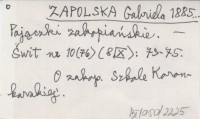 ZAPOLSKA Gabriela 1885...
Pajączki zakopiańskie. —
Świt nr 10(76) (8 IX): 73-75.
O zakop. Szkole Koron-
karskiej.